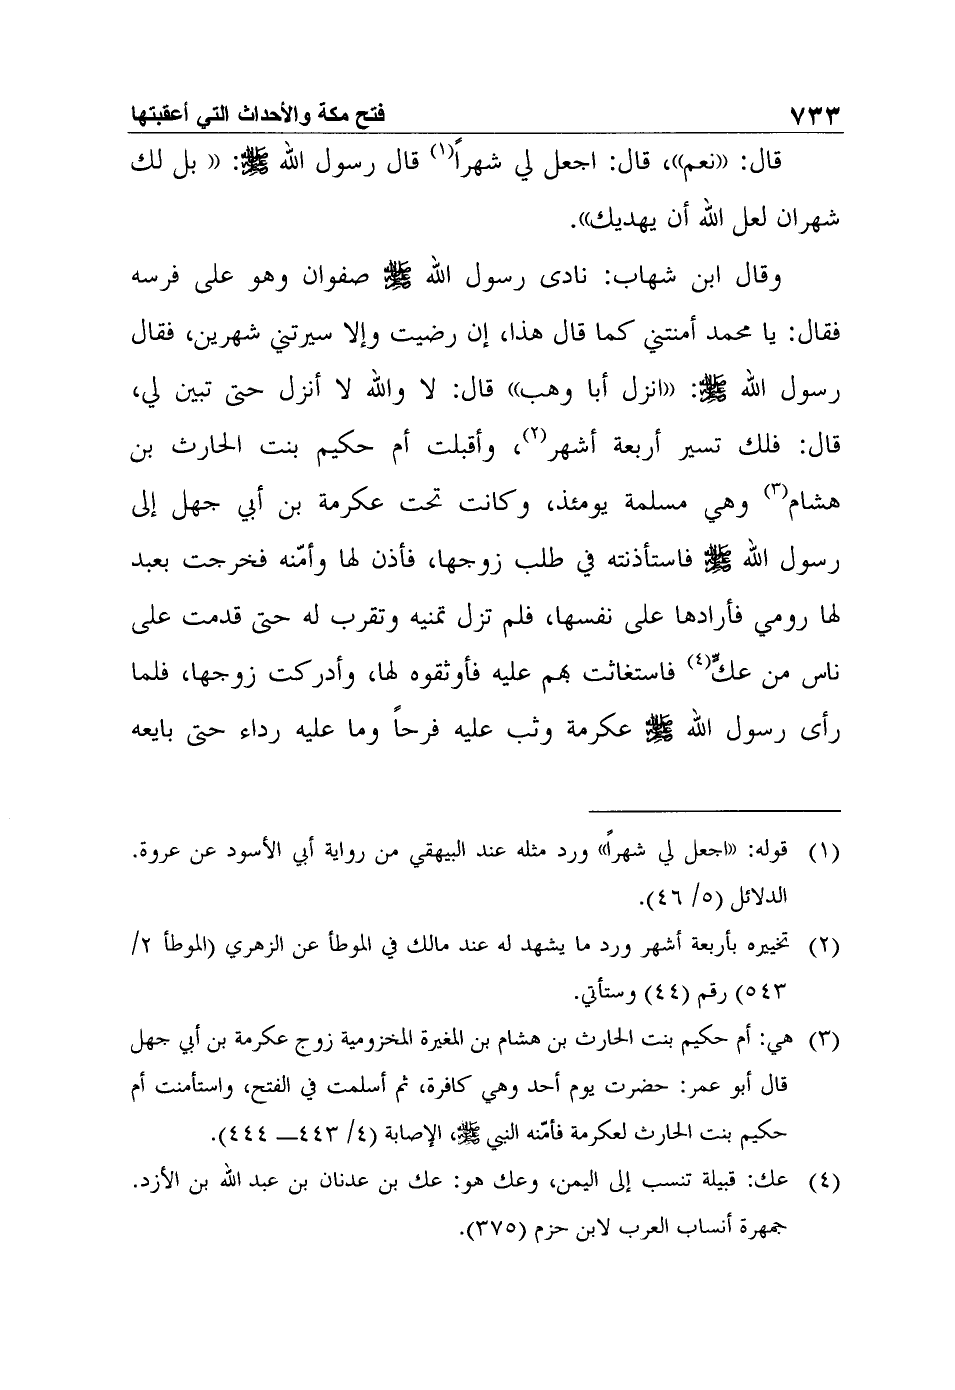 ٧٣٣ فتح مكة والأحداث التي أعقبتها
قال: «نعم»، قال: اجعل لي شهراً(١) قال رسول الله ﷺ: « بل لك
شهران لعل الله أن يهديك».
وقال ابن شهاب: نادى رسول الله ﷺ صفوان وهو على فرسه
فقال: يا محمد أمنتني كما قال هذا، إن رضيت وإلا سيرتني شهرين، فقال
رسول الله ﷺ: «انزل أبا وهب» قال: لا والله لا أنزل حتى تبين لي،
قال: فلك تسير أربعة أشهر(٢)، وأقبلت أم حكيم بنت الحارث بن
هشام(٣) وهي مسلمة يومئذ، وكانت تحت عكرمة بن أبي جهل إلى
رسول الله ﷺ فاستأذنته في طلب زوجها، فأذن لها وأمّنه فخرجت بعبد
لها رومي فأرادها على نفسها، فلم تزل تمنيه وتقرب له حتى قدمت على
ناس من عكٍّ(٤) فاستغاثت بهم عليه فأوثقوه لها، وأدركت زوجها، فلما
رأى رسول الله ﷺ عكرمة وثب عليه فرحاً وما عليه رداء حتى بايعه
(١) قوله: «اجعل لي شهراً» ورد مثله عند البيهقي من رواية أبي الأسود عن عروة.
الدلائل (٥/ ٤٦).
(٢) تخييره بأربعة أشهر ورد ما يشهد له عند مالك في الموطأ عن الزهري (الموطأ ٢/
٥٤٣) رقم (٤٤) وستأتي.
(٣) هي: أم حكيم بنت الحارث بن هشام بن المغيرة المخزومية زوج عكرمة بن أبي جهل
قال أبو عمر: حضرت يوم أحد وهي كافرة، ثم أسلمت في الفتح، واستأمنت أم
حكيم بنت الحارث لعكرمة فأمّنه النبي ﷺ، الإصابة (٤/ ٤٤٣ــ ٤٤٤).
(٤) عك: قبيلة تنسب إلى اليمن، وعك هو: عك بن عدنان بن عبد الله بن الأزد.
جمهرة أنساب العرب لابن حزم (٣٧٥).